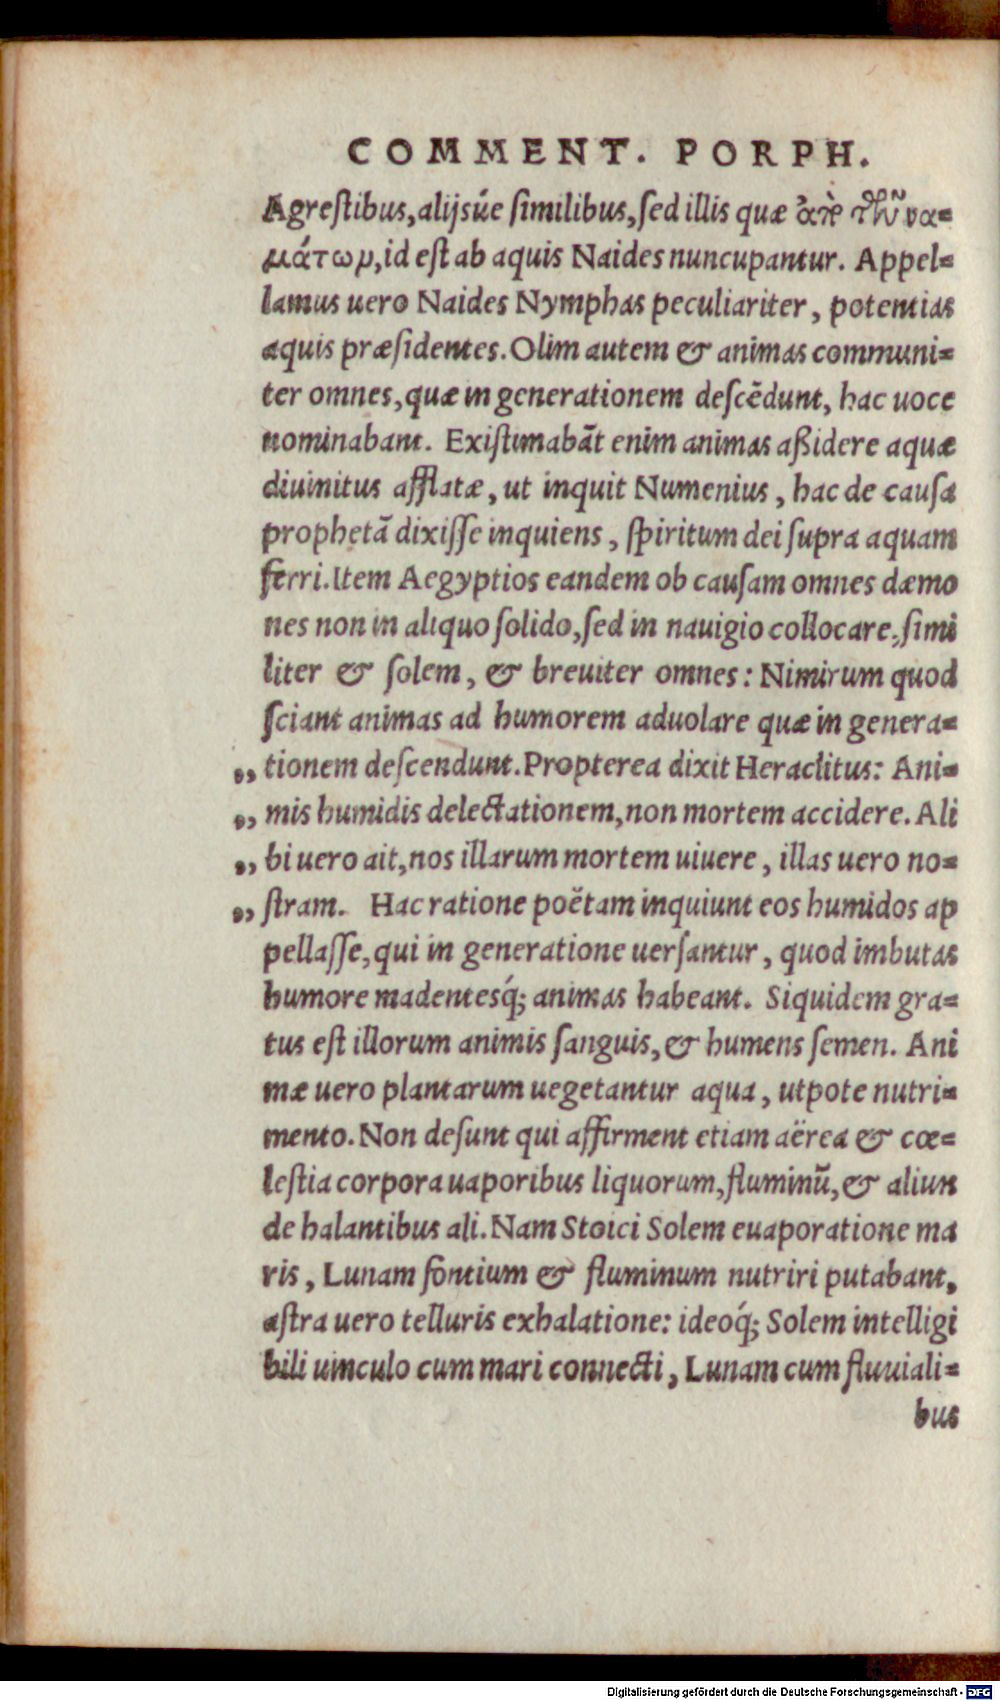 COMMENT. PORPH.
Agreſtibus, alijsúe ſimilibus, ſed illis quæ ἀπὸ τῶν να=
μάτων, id eſt ab aquis Naides nuncupantur. Appel=
lamus uero Naides Nymphas peculiariter, potentias
aquis præſidentes. Olim autem & animas communi=
ter omnes, quæ in generationem deſcēdunt, hac uoce
nominabant. Exiſtimabāt enim animas aßidere aquæ
diuinitus afflatæ, ut inquit Numenius, hac de cauſa
prophetā dixiſſe inquiens, ſpiritum dei ſupra aquam
ferri. Item Aegyptios eandem ob cauſam omnes dæmo
nes non in aliquo ſolido, ſed in nauigio collocare, ſimi
liter & ſolem, & breuiter omnes: Nimirum quod
ſciant animas ad humorem aduolare quæ in genera=
„ tionem deſcendunt. Propterea dixit Heraclitus: Ani=
„ mis humidis delectationem, non mortem accidere. Ali
„ bi uero ait, nos illarum mortem uiuere, illas uero no=
„ ſtram. Hac ratione poëtam inquiunt eos humidos ap
pellaſſe, qui in generatione uerſantur, quod imbutas
humore madentesq́; animas habeant. Siquidem gra=
tus eſt illorum animis ſanguis, & humens ſemen. Ani
mæ uero plantarum uegetantur aqua, utpote nutri=
mento. Non deſunt qui affirment etiam aërea & cœ=
leſtia corpora uaporibus liquorum, fluminū, & aliun
de halantibus ali. Nam Stoici Solem euaporatione ma
ris, Lunam fontium & fluminum nutriri putabant,
aſtra uero telluris exhalatione: ideoq́; Solem intelligi
bili uinculo cum mari connecti, Lunam cum fluuiali=
bus
Digitalisierung gefördert durch die Deutsche Forschungsgemeinschaft - DFG